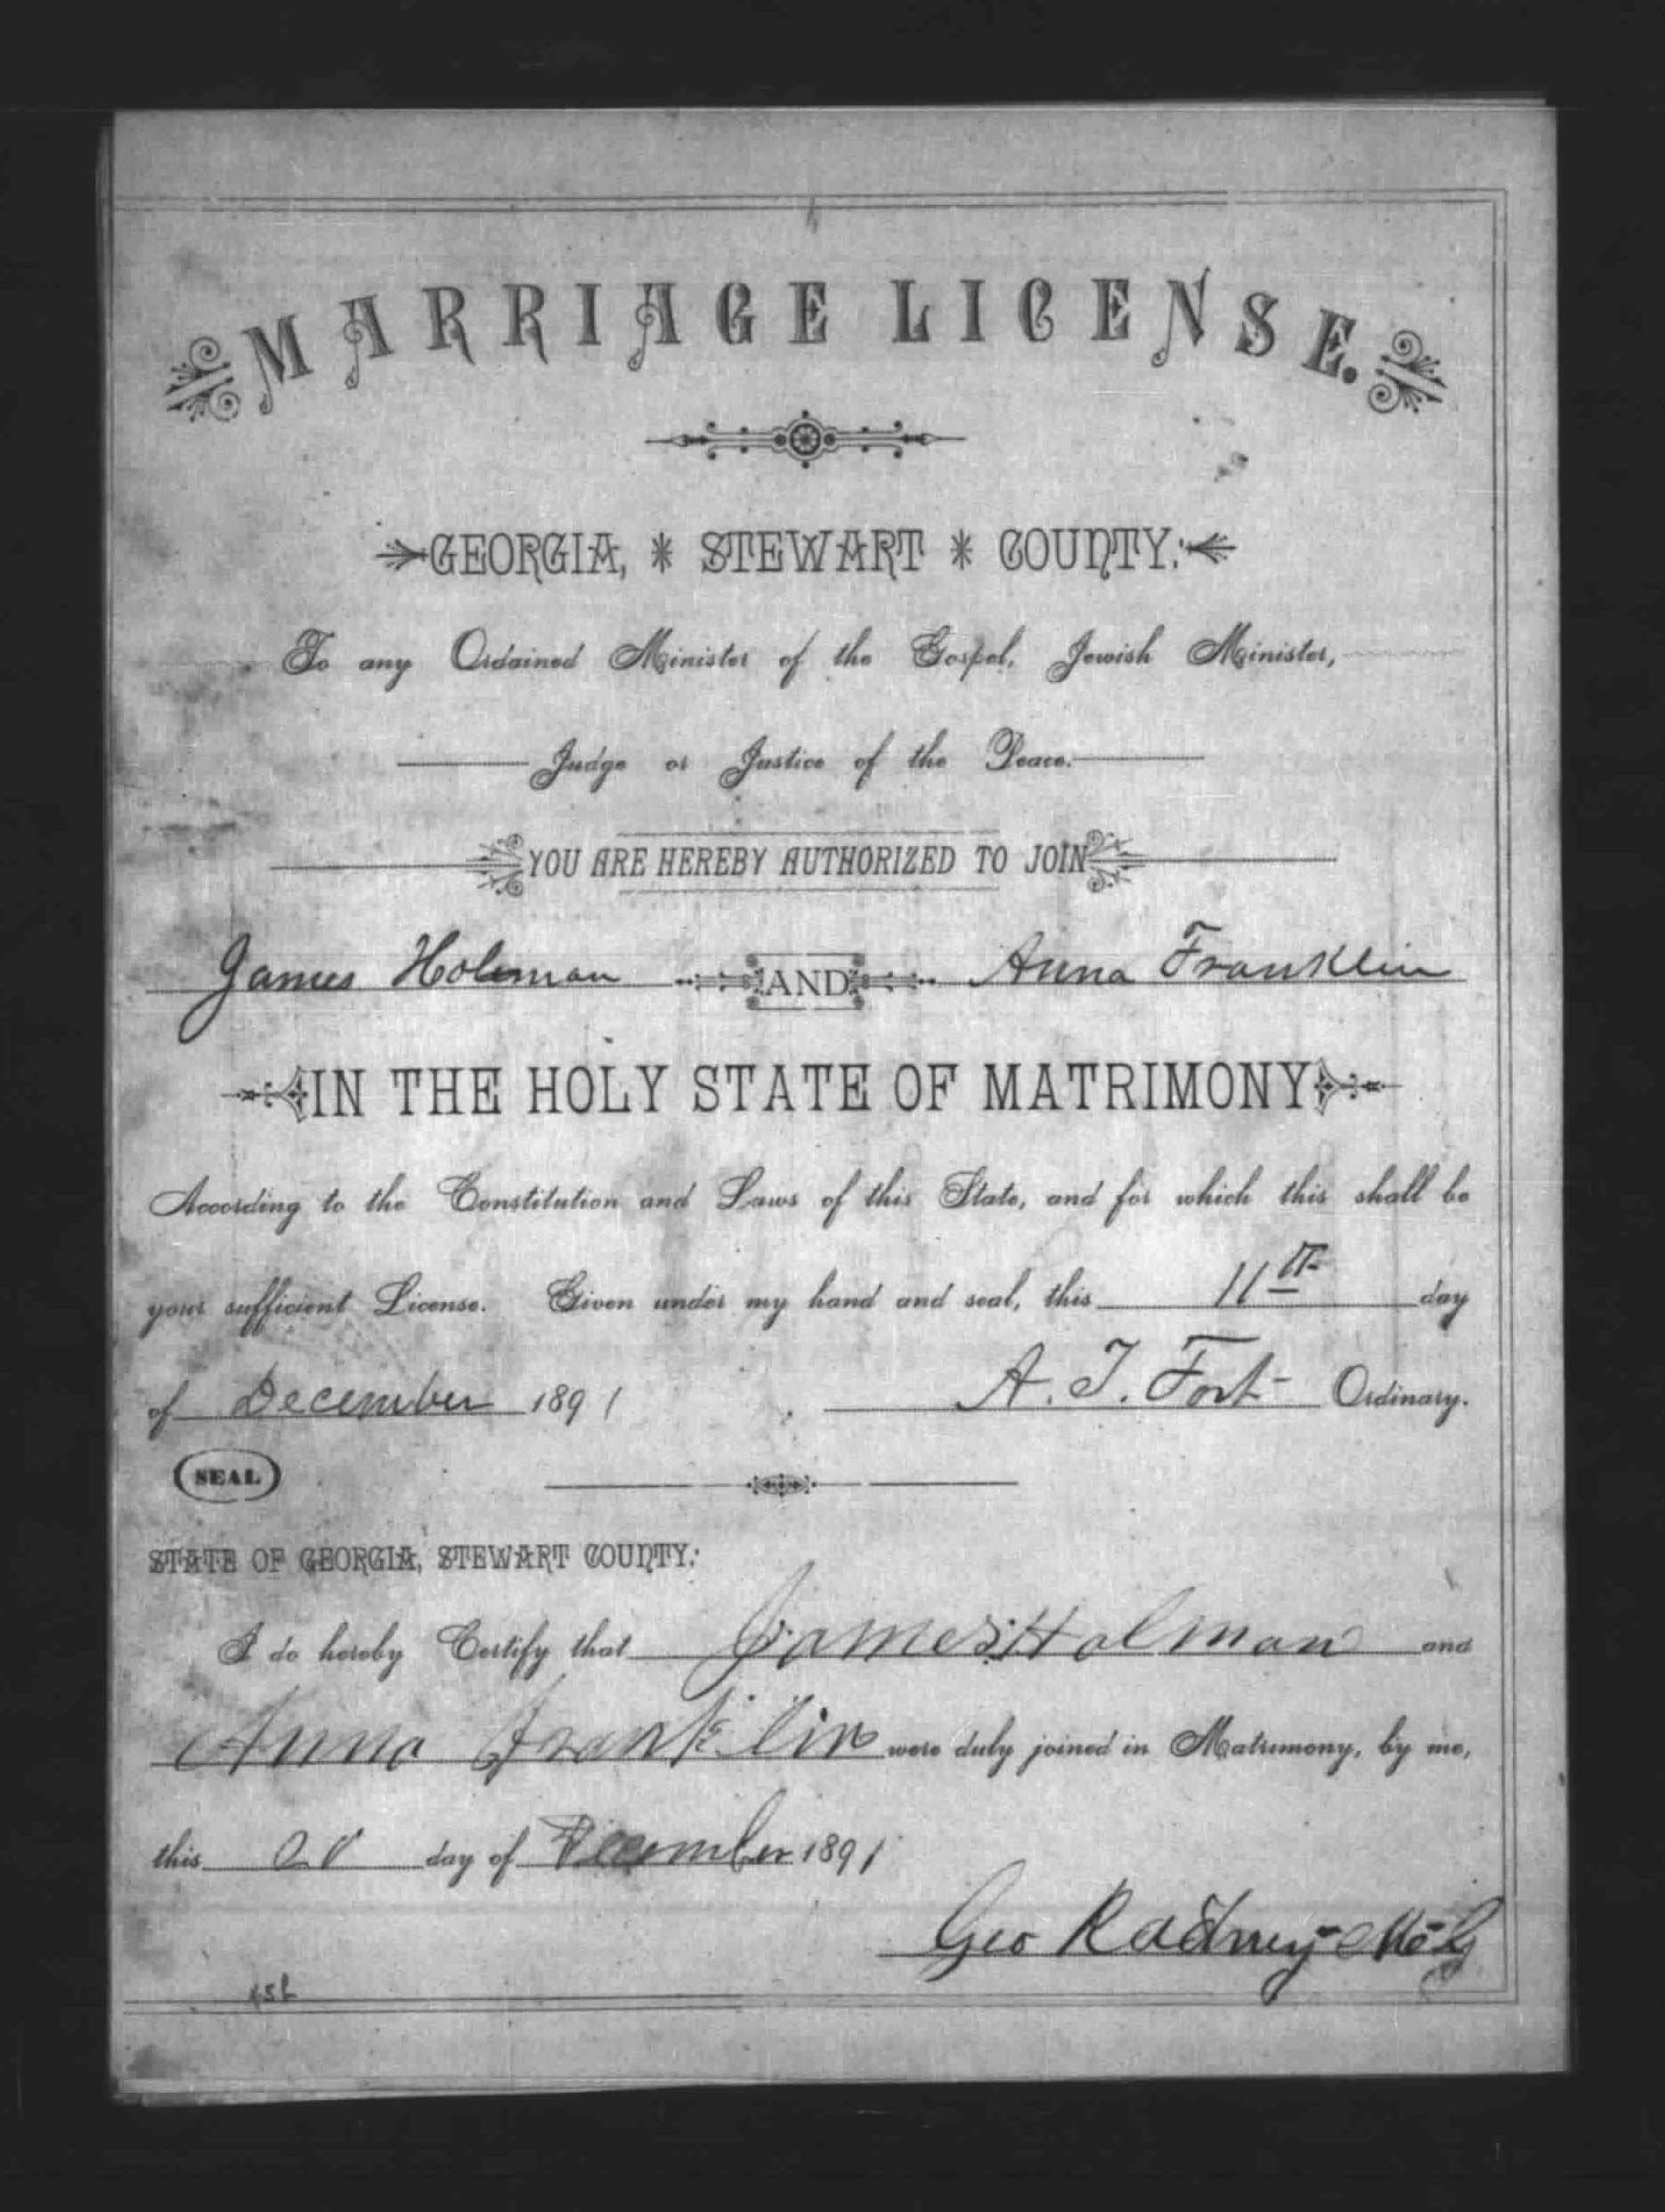 MARRIAGE LICENSE.
GEORGIA, * STEWART * COUNTY:
To any Ordained Minister of the Gospel, Jewish Minister,
Judge or Justice of the Peace.
YOU ARE HEREBY AUTHORIZED TO JOIN
James Holman AND Anna Franklin
IN THE HOLY STATE OF MATRIMONY
According to the Constitution and Laws of this State, and for which this shall be
your sufficient License. Given under my hand and seal, this 11th day
of December 1891 A. T. Fort Ordinary.
SEAL
STATE OF GEORGIA, STEWART COUNTY:
I do hereby Certify that James Holman and
Anna Franklin were duly joined in Matrimony, by me,
this day of December 1891
Geo Radney